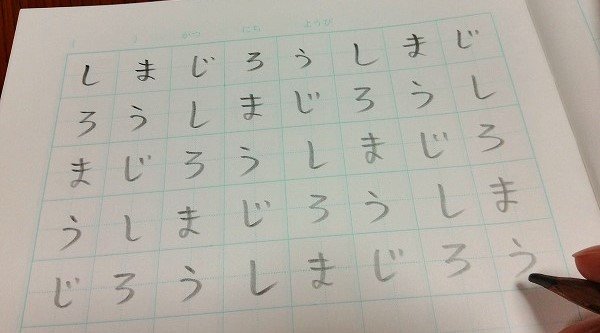 ( ) がつ にち ようび
しまじろうしまじ
ろうしまじろうし
まじろうしまじろ
うしまじろうしま
じろうしまじろう